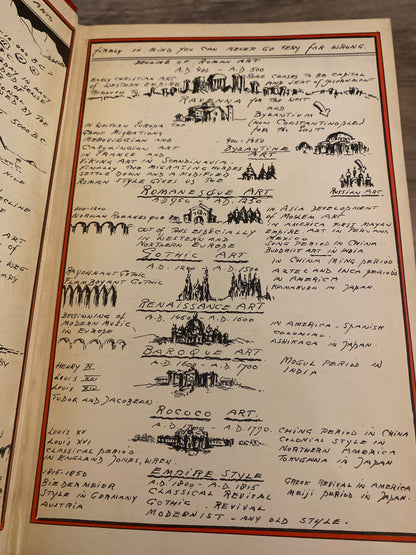 FIRMLY IN MIND YOU CAN NEVER GO VERY FAR WRONG.
DECLINE OF ROMAN ART
A.D. 400 - A.D 500
EARLY CHRISTIAN ART
OF WESTERN EMPIRE
ROME CEASES TO BE CAPITAL
AND SEAT OF GOVERNMENT
RAVENNA FOR THE WEST
AND
BYZANTIUM
(NOW CONSTANTINOPLE)
FOR THE EAST
IN WESTERN EUROPE THE
GREAT MIGRATIONS
MEROVINGIAN AND
CAROLINGIAN ART
IN FRANCE AND
VIKING ART IN SCANDINAVIA.
FINALLY THE MIGRATING HORDES
SETTLE DOWN AND A MODIFIED
ROMAN STYLE GIVES US THE
400-1450
BYZANTINE
ART
RUSSIAN ART.
ROMANESQUE ART
A.D 950 A.D. 1250
NORMAN ROMANESQUE
OUT OF THIS ESPECIALLY
IN WESTERN AND
NORTHERN EUROPE
IN ASIA DEVELOPMENT
OF MOSLEM ART
IN AMERICA FIRST MAYAN
EMPIRE ART IN PERU AND
MEXICO
SONG PERIOD IN CHINA
BUDDHIST ART IN INDIA
GOTHIC ART
A.D. 1200 A.D. 1500
RAYONNANT GOTHIC
FLAMBOYANT GOTHIC
IN CHINA MING PERIOD
AZTEC AND INCA PERIODS
IN AMERICA
KAMAKURA IN JAPAN
RENAISSANCE ART
A.D. 1450 - A.D. 1600
BEGINNING OF
MODERN MUSIC
IN EUROPE
IN AMERICA - SPANISH
COLONIAL.
ASHIKAGA IN JAPAN.
BAROQUE ART
A.D. 1600 - A.D. 1700
HENRY IV
LOUIS XIII
LOUIS XIV
TUDOR AND JACOBEAN.
MOGUL PERIOD IN
INDIA
ROCOCO ART.
A.D. A.D. 1790.
LOUIS XV
LOUIS XVI
CLASSICAL PERIOD
IN ENGLAND JONES, WREN.
CHING PERIOD IN CHINA
COLONIAL STYLE IN
NORTHERN AMERICA
TOKUGAWA IN JAPAN
EMPIRE STYLE
1815-1850
BIEDERMEIER
STYLE IN GERMANY
AUSTRIA
A.D. 1800 - A.D. 1815
CLASSICAL REVIVAL
GOTHIC REVIVAL
MODERNIST - ANY OLD STYLE.
GREEK REVIVAL IN AMERICA
MEIJI PERIOD IN JAPAN.